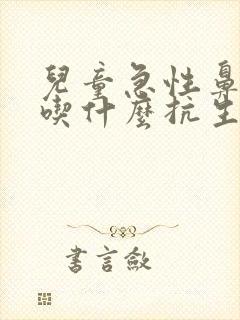 兒童急性鼻
喫什麼抗生
書言斂